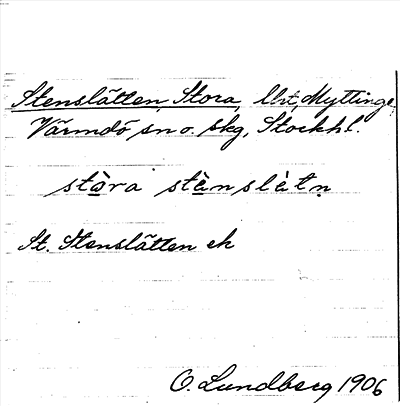 Stenslätten, Stora, lht, Myttinge,
Värmdö sn o. skg, Stockh.l.
stòra stènslètn̥
St. Stenslätten ek
O. Lundberg 1906